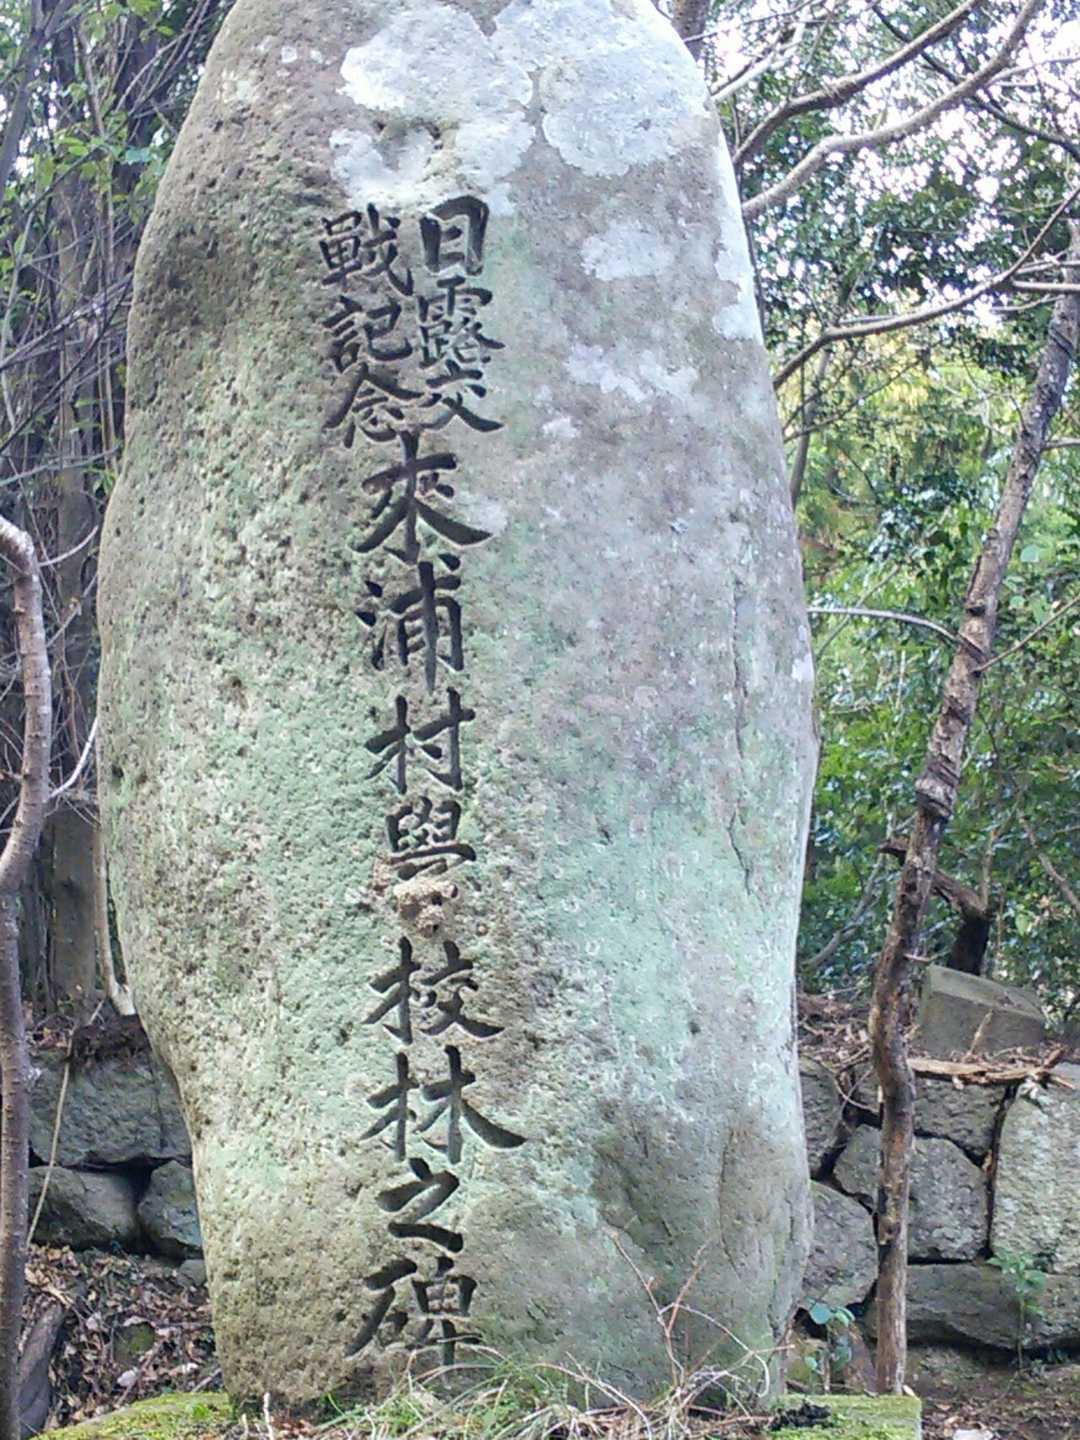 日露交
戰記念
來浦村學校林之碑